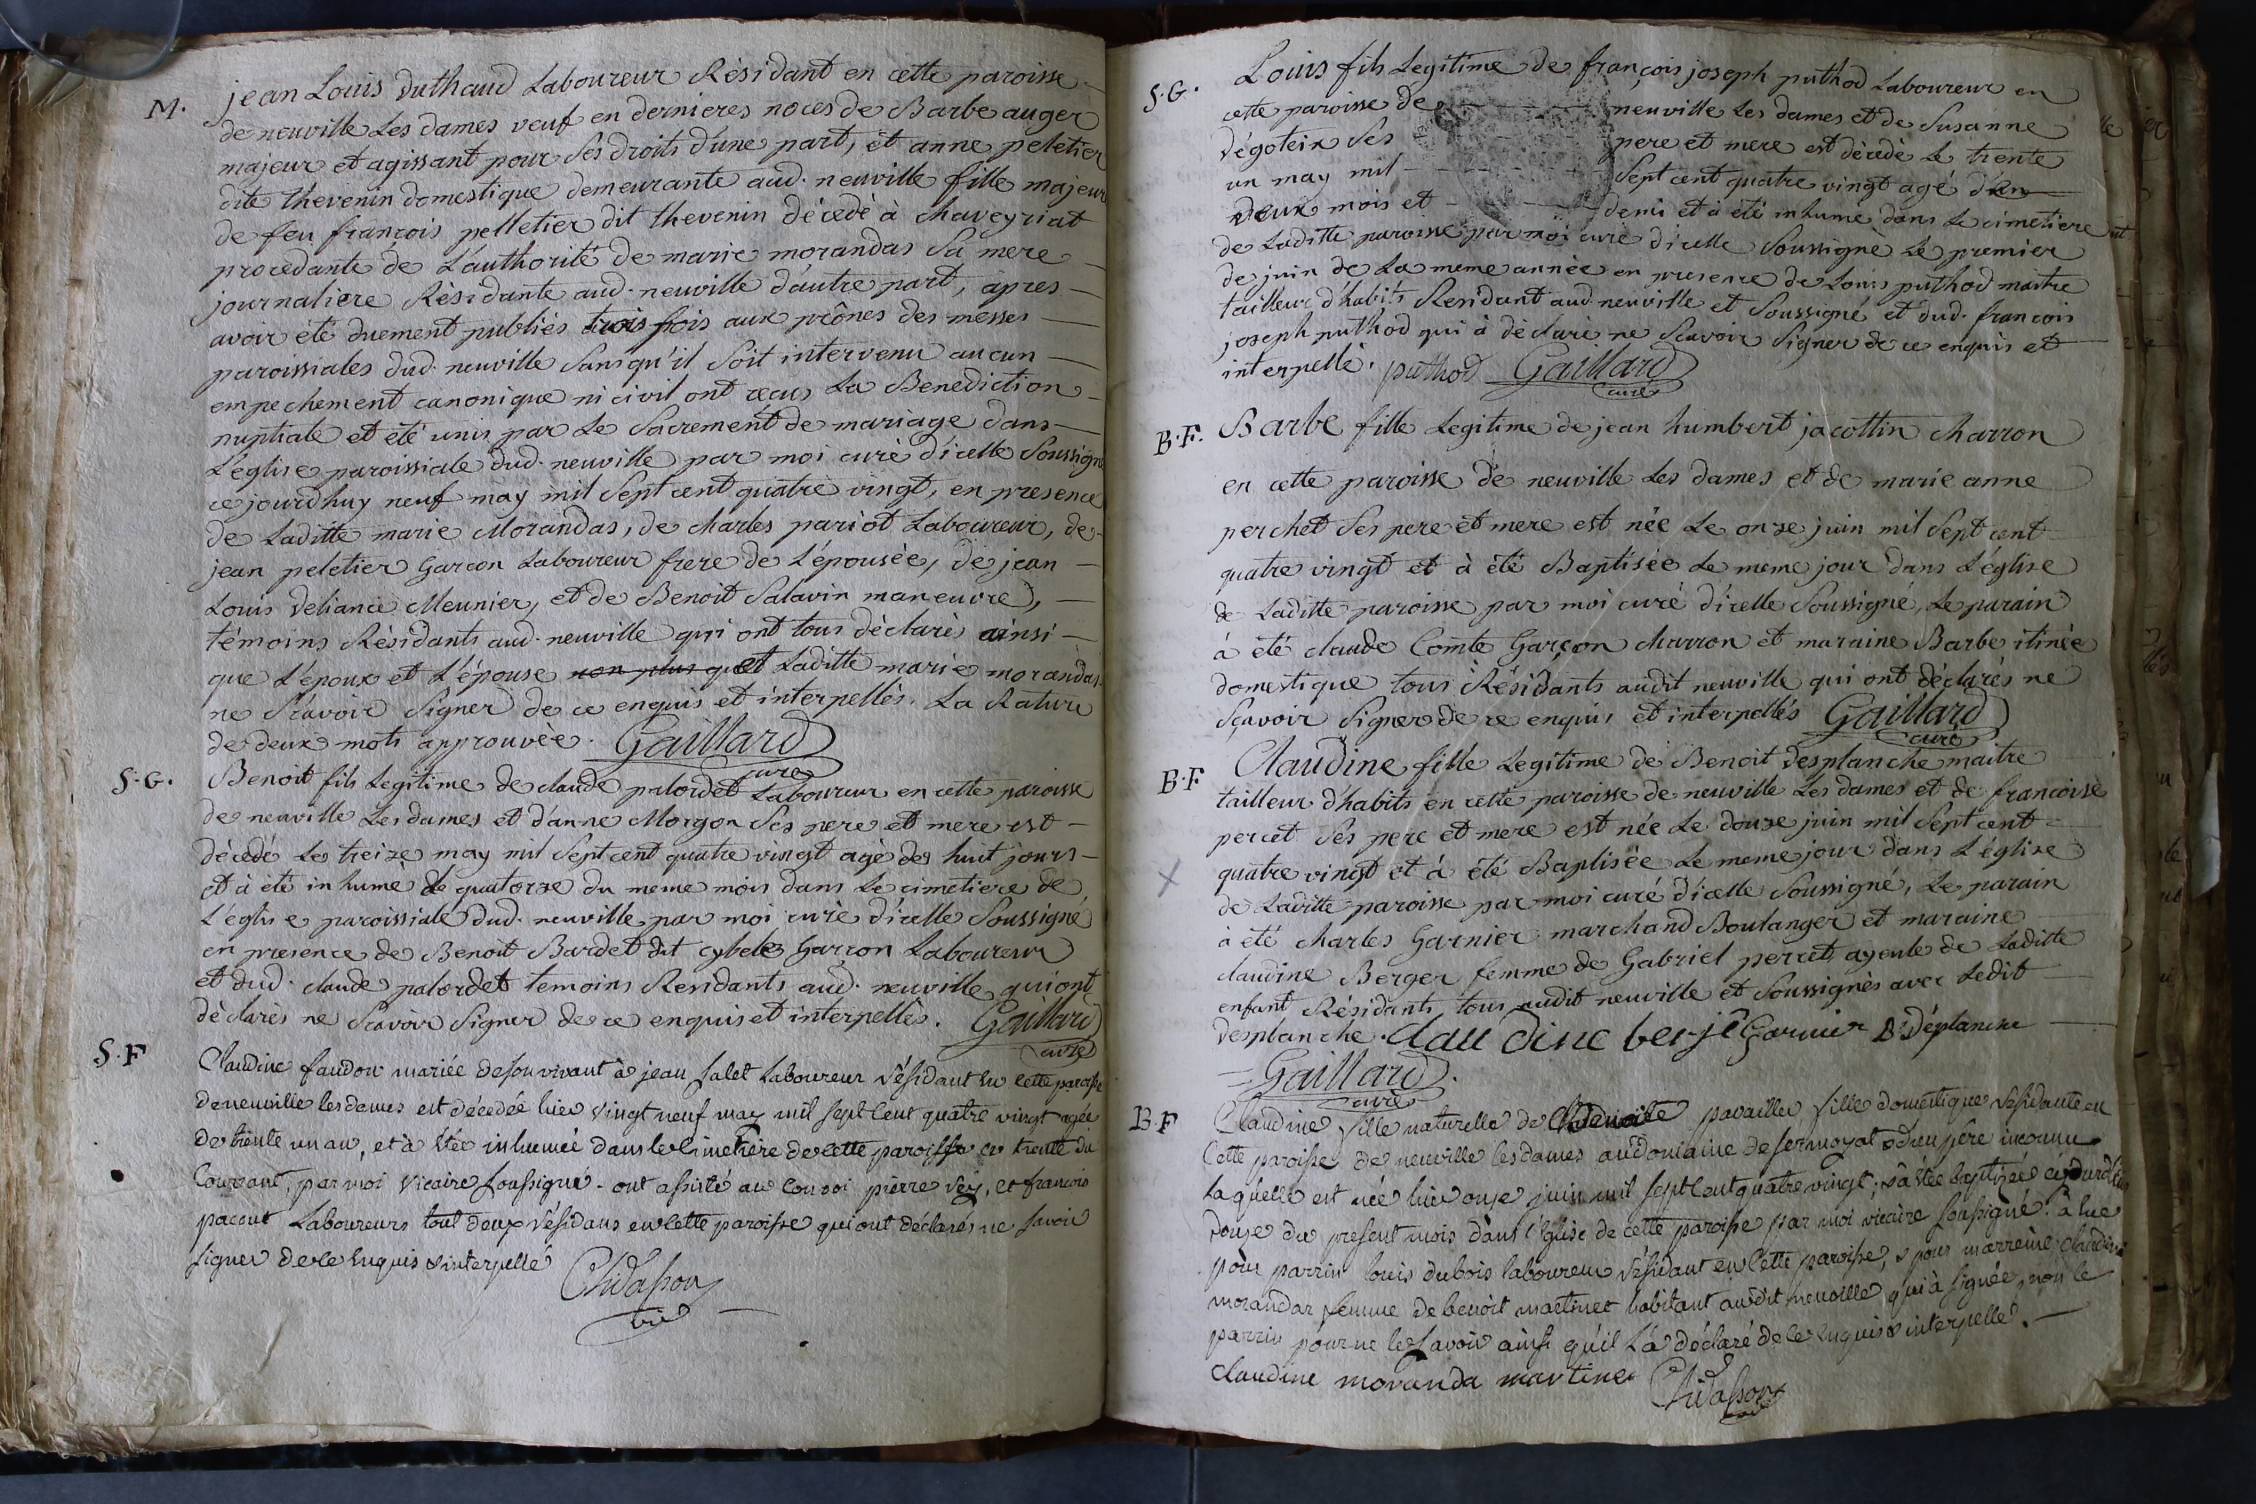 M. jean Louis duthaud Laboureur Résidant en cette paroisse
de neuville Les dames veuf en dernieres noces de Barbe auger
majeur et agissant pour ses droits d'une part, et anne peletier
dite thevenin domestique demeurante aud. neuville fille majeure
de feu francois pelletier dit thevenin décedé à chaveyriat
procedante de L'authorité de marie morandas sa mere
journaliere Résidante aud. neuville d'autre part, après
avoir été duement publiés trois fois aux prônes des messes
paroissiales dud. neuville sans qu'il soit intervenu aucun
empechement canonique ni civil ont recus La Benediction
nuptiale et été unis par Le Sacrement de mariage dans
L'eglise paroissiale dud. neuville par moi curé d'icelle Soussigné
ce jourdhuy neuf may mil sept cent quatre vingt, en presence
de Laditte marie Morandas, de charles pariot Laboureur, de
jean peletier Garcon Laboureur frere de L'épousée, de jean
Louis deliance Meunier, et de Benoit Salavin maneuvre,
témoins Résidants aud. neuville qui ont tous déclarés ainsi
que L'époux et L'épouse non plus que et Laditte marie morandas
ne Scavoir Signer de ce enquis et interpellés. La Rature
de deux mots approuvée. Gaillard
curé
S.G. Benoit fils Legitime de claude palordet Laboureur en cette paroisse
de neuville Les dames et d'anne Morgon Ses pere et mere est
décedé Le treize may mil Sept cent quatre vingt agé de huit jours
et à été inhumé Le quatorze du meme mois dans Le cimetiere de
L'eglise paroissiale dud. neuville par moi curé d'icelle Soussigné
en presence de Benoit Bardet dit cybele Garcon Laboureur
et dud. claude palordet temoins Residants aud. neuville qui ont
déclarés ne Scavoir Signer de ce enquis et interpellés. Gaillard
curé
S.F Claudine faudon mariée de son vivant à jean Salet Laboureur résidant en cette paroisse
de neuville les dames est décedée hier vingt neuf may mil sept cent quatre vingt agée
de trente un an, et à étée inhumée dans le cimetière de cette paroisse le trente du
Courrant, par moi Vicaire soussigné. ont assisté au convoi pierre vey, et francois
pacout Laboureurs tout deux résidans en cette paroisse qui ont déclarés ne savoir
signer de ce enquis & interpellé
Chidasson
vic
S.G. Louis fils Legitime de françois joseph puthod Laboureur en
cette paroisse de neuville Les dames et de Susanne
dégotein Ses pere et mere est décedé Le trente
un may mil Sept cent quatre vingt agé d'un
deux mois et demi et à été inhumé dans Le cimetiere
de Laditte paroisse par moi curé d'icelle Soussigné Le premier
de juin de La meme année en presence de Louis puthod maitre
tailleur d'habits Residant aud. neuville et Soussigné et dud. francois
joseph puthod qui à déclaré ne Scavoir Signer de ce enquis et
interpellé. puthod Gaillard
curé
B.F. Barbe fille Legitime de jean humbert jacottin charron
en cette paroisse de neuville Les dames et de marie anne
perchet Ses pere et mere est née Le onze juin mil Sept cent
quatre vingt et à été Baptisée Le meme jour dans L'église
de Laditte paroisse par moi curé d'icelle Soussigné, Le parain
à été claude Comte Garçon charron et maraine Barbe itinée
domestique tous Résidants audit neuville qui ont déclarés ne
Sçavoir Signer de ce enquis et interpellés Gaillard
curé
B.F Claudine fille Legitime de Benoit desplanche maitre
tailleur d'habits en cette paroisse de neuville Les dames et de francoise
percet Ses pere et mere est née Le douze juin mil Sept cent
quatre vingt et à été Baptisée Le meme jour dans L'église
de Laditte paroisse par moi curé d'icelle Soussigné, Le parain
à été charles Garnier marchand Boulanger et maraine
claudine Berger femme de Gabriel perret ayeule de Laditte
enfant Résidants tous audit neuville et Soussignés avec Ledit
desplanche. claudine berjé Garnier B déplanche
Gaillard
curé
B.F Claudine fille naturelle de pavailler fille domestique résidante en
Cette paroisse de neuville les dames au domaine de sermoyat & d'un père inconnu
Laquelle est née hier onze juin mil sept cent quatre vingt; & à étée baptizée cejourd'hui
douze du present mois dans l'église de cette paroisse par moi vicaire soussigné. à eue
pour parrin louis dubois laboureur résidant en cette paroisse, & pour marreine claudine
morandas femme de benoit martinet habitant audit neuville qui à signée, non le
parrin pour ne le savoir ainsi qu'il l'à déclaré de ce enquis & interpellé.
claudine moranda martinet Chidasson
vic